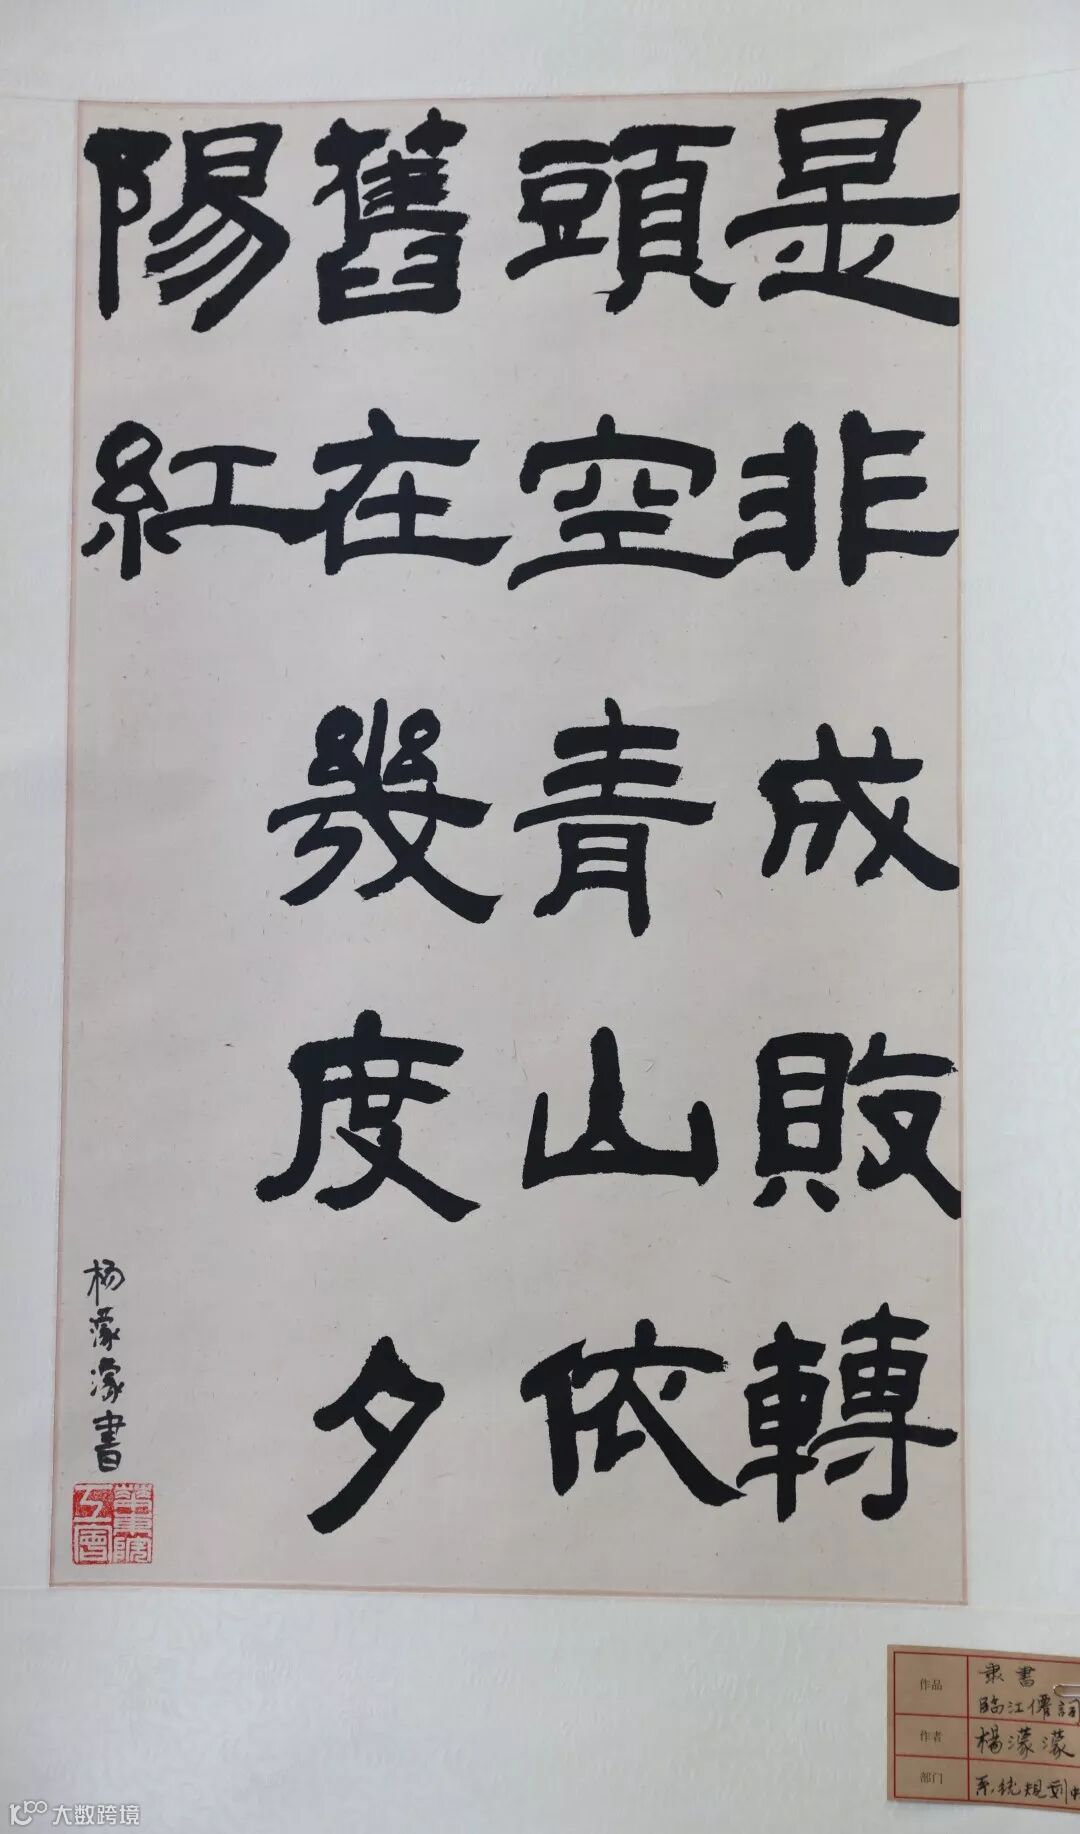 是非成敗轉
頭空青山依
舊在幾度夕
陽紅
杨濛濛書
作品
隶書
臨江僊詞
作者
楊濛濛
部门
系统规划
大数跨境